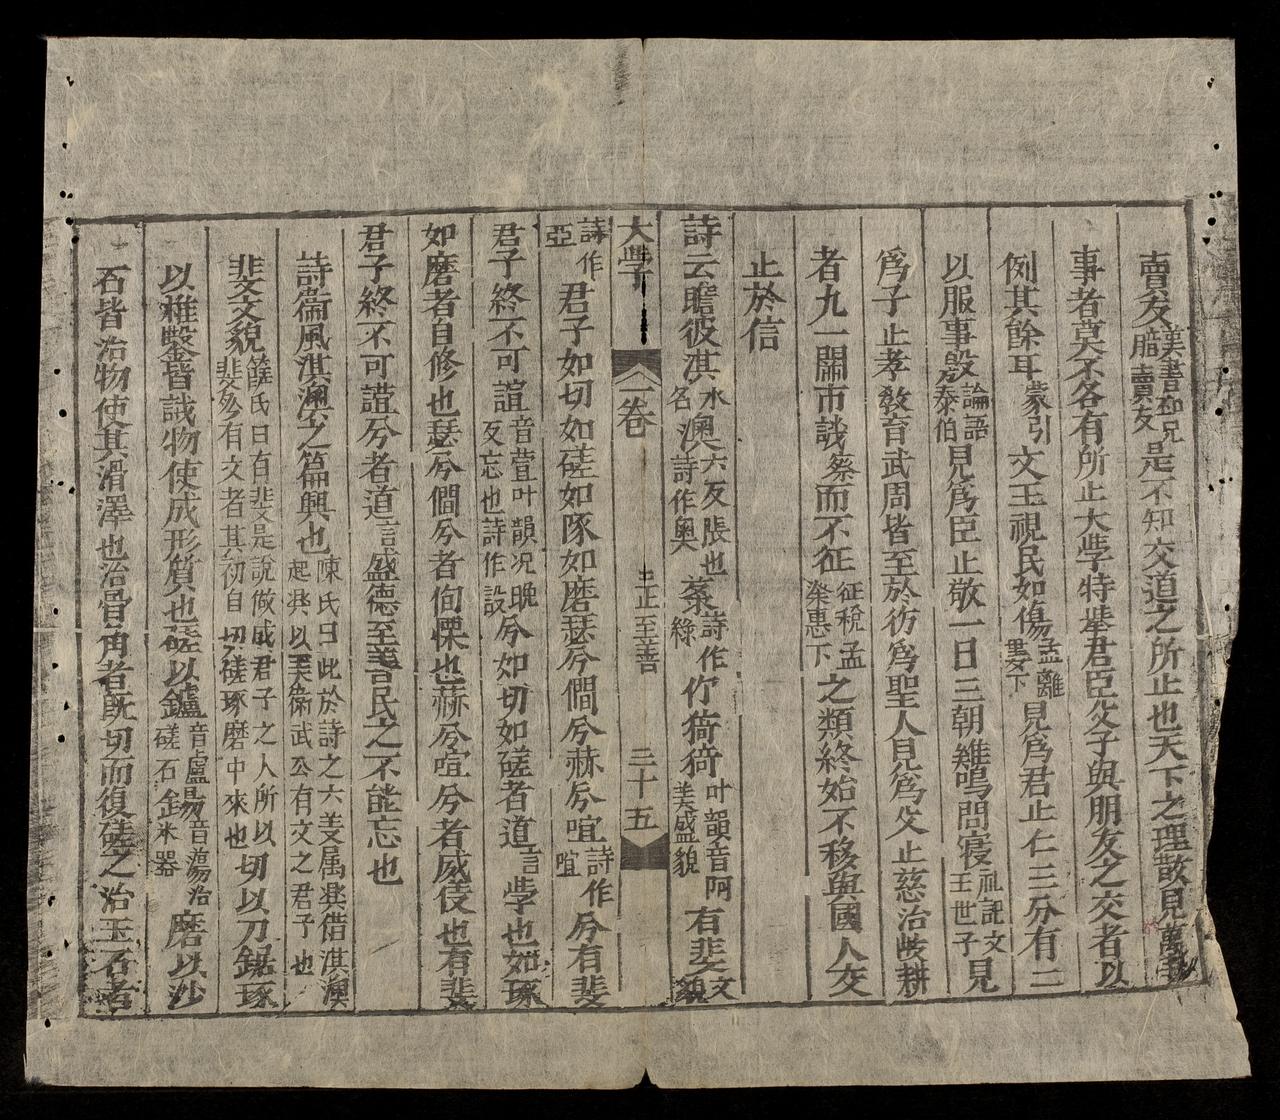 賣友漢書酈况賣友是不知交道之所止也天下之理散見萬
事者莫不各有所止大學特舉君臣父子與朋友之交者以
例其餘耳蒙引文王視民如傷孟離婁下見爲君止仁三分有二
以服事殷論語泰伯見爲臣止敬一日三朝雞鳴問寢礼記文王世子見
爲子止孝敎育武周皆至於仿爲聖人見爲父止慈治岐耕
者九一關市譏察而不征征稅孟梁惠下之類終始不移與國人交
止於信
詩云瞻彼淇水名澳六反張也詩作奧菉詩作綠竹猗猗叶韻音阿美盛貌有斐文貌
大學 一卷 止至善 三十五
詩作亞君子如切如磋如琢如磨瑟兮僩兮赫兮喧詩作咺兮有斐
君子終不可諠音萱叶韻况晚反忘也詩作諼兮如切如磋者道言學也如琢
如磨者自修也瑟兮僩兮者恂慄也赫兮喧兮者威儀也有斐
君子終不可諠兮者道言盛德至善民之不能忘也
詩衞風淇澳之篇興也陳氏曰此於詩之六義属興借淇澳起興以美衛武公有文之君子也
斐文貌饒氏曰有斐是說做成君子之人所以斐然有文者其初自切磋琢磨中來也切以刀鋸琢
以椎鑿皆裁物使成形質也磋以鑢音慮錫音蕩治磋石鈖米器磨以沙
石皆治物使其滑澤也治骨角者旣切而復磋之治玉石者